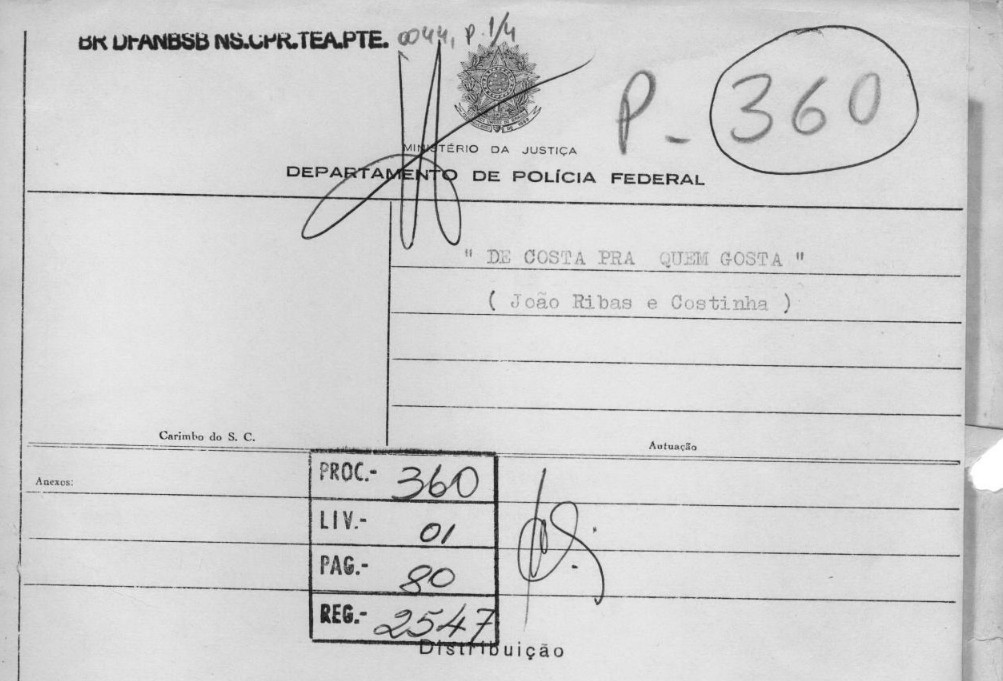 BR DFANBSB NS.CPR.TEA.PTE. 0044, p. 1/4
P- 360
MINISTÉRIO DA JUSTIÇA
DEPARTAMENTO DE POLÍCIA FEDERAL
" DE COSTA PRA QUEM GOSTA "
( João Ribas e Costinha )
Carimbo do S. C.
Autuação
Anexos:
PROC.- 360
LIV.- 01
PAG.- 80
REG.- 2547
Distribuição